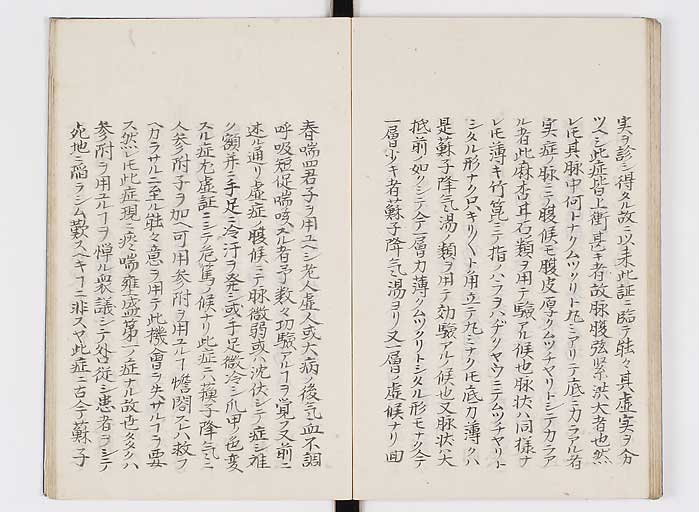 実ヲ診シ得タル故ニ以来此証ニ臨テ能々其虚実ヲ分
ツヘシ此症皆上衝甚キ者故脉腹弦緊洪大者也然
レ𪜈其脉中何トナクムツクリト丸ミアリテ底ニ力ラアル者
実症ノ脉ニテ腹候モ腹皮厚クムツチヤリトシテ力ラア
ル者此麻杏甘石類ヲ用テ驗アル候也脉状ハ同様ナ
レ𪜈薄キ竹篦ニテ指ノハラヲハヂツヤウニテムツチヤリト
シタル形ナク只キリ〱ト角立テ丸ミナク𪜈底力薄クハ
是蘇子降気湯ノ類ヲ用テ効驗アルノ候也又脉状ハ大
抵前ノ如クシテ今一層力薄クムツクリトシタル形モナク今
一層少キ者蘇子降気湯ヨリ又一層ノ虚候ナリ回
春喘四君子ヲ用ユヘシ老人虚人或大病ノ後気血不調
呼吸短促喘咳スル者予数々功驗アルヿヲ覚フ又前ニ
述ル通リ虚症ノ腹候ニテ脉微弱或ハ沈伏シテノ症シ難
ク額并ニ手足ニ冷汗ヲ発シ或手足微冷シ爪甲ノ色変
スル症尤虚証ニシテ危篤ノ候ナリ此症ニハ蘇子降気ニ
人参附子ヲ加ヘ可用参附ヲ用ユルヿ遅滞スレハ救フ
ヘカラサルニ至ル能々意ヲ用テ此機會ヲ失サルヿヲ要
ス然レ𪜈此症現ニ痰喘壅盛第一ノ症ナル故世
参附ヲ用ルヿヲ憚ル衆議シテ外ニ従シ患者ヲシテ
死地ニ陥ラシム歎スヘキヿニ非スヤ此症ニ古今ノ蘇子